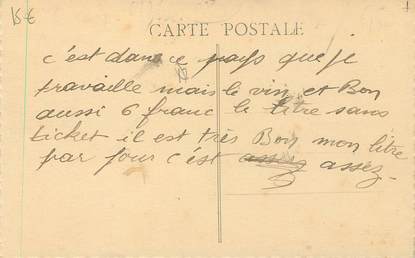 15€
CARTE POSTALE
c'est dans ce pays que je
travaille mais le vin et Bon
aussi 6 franc le litre sans
ticket il est très Bon mon litre
par jour c'est assez assez -